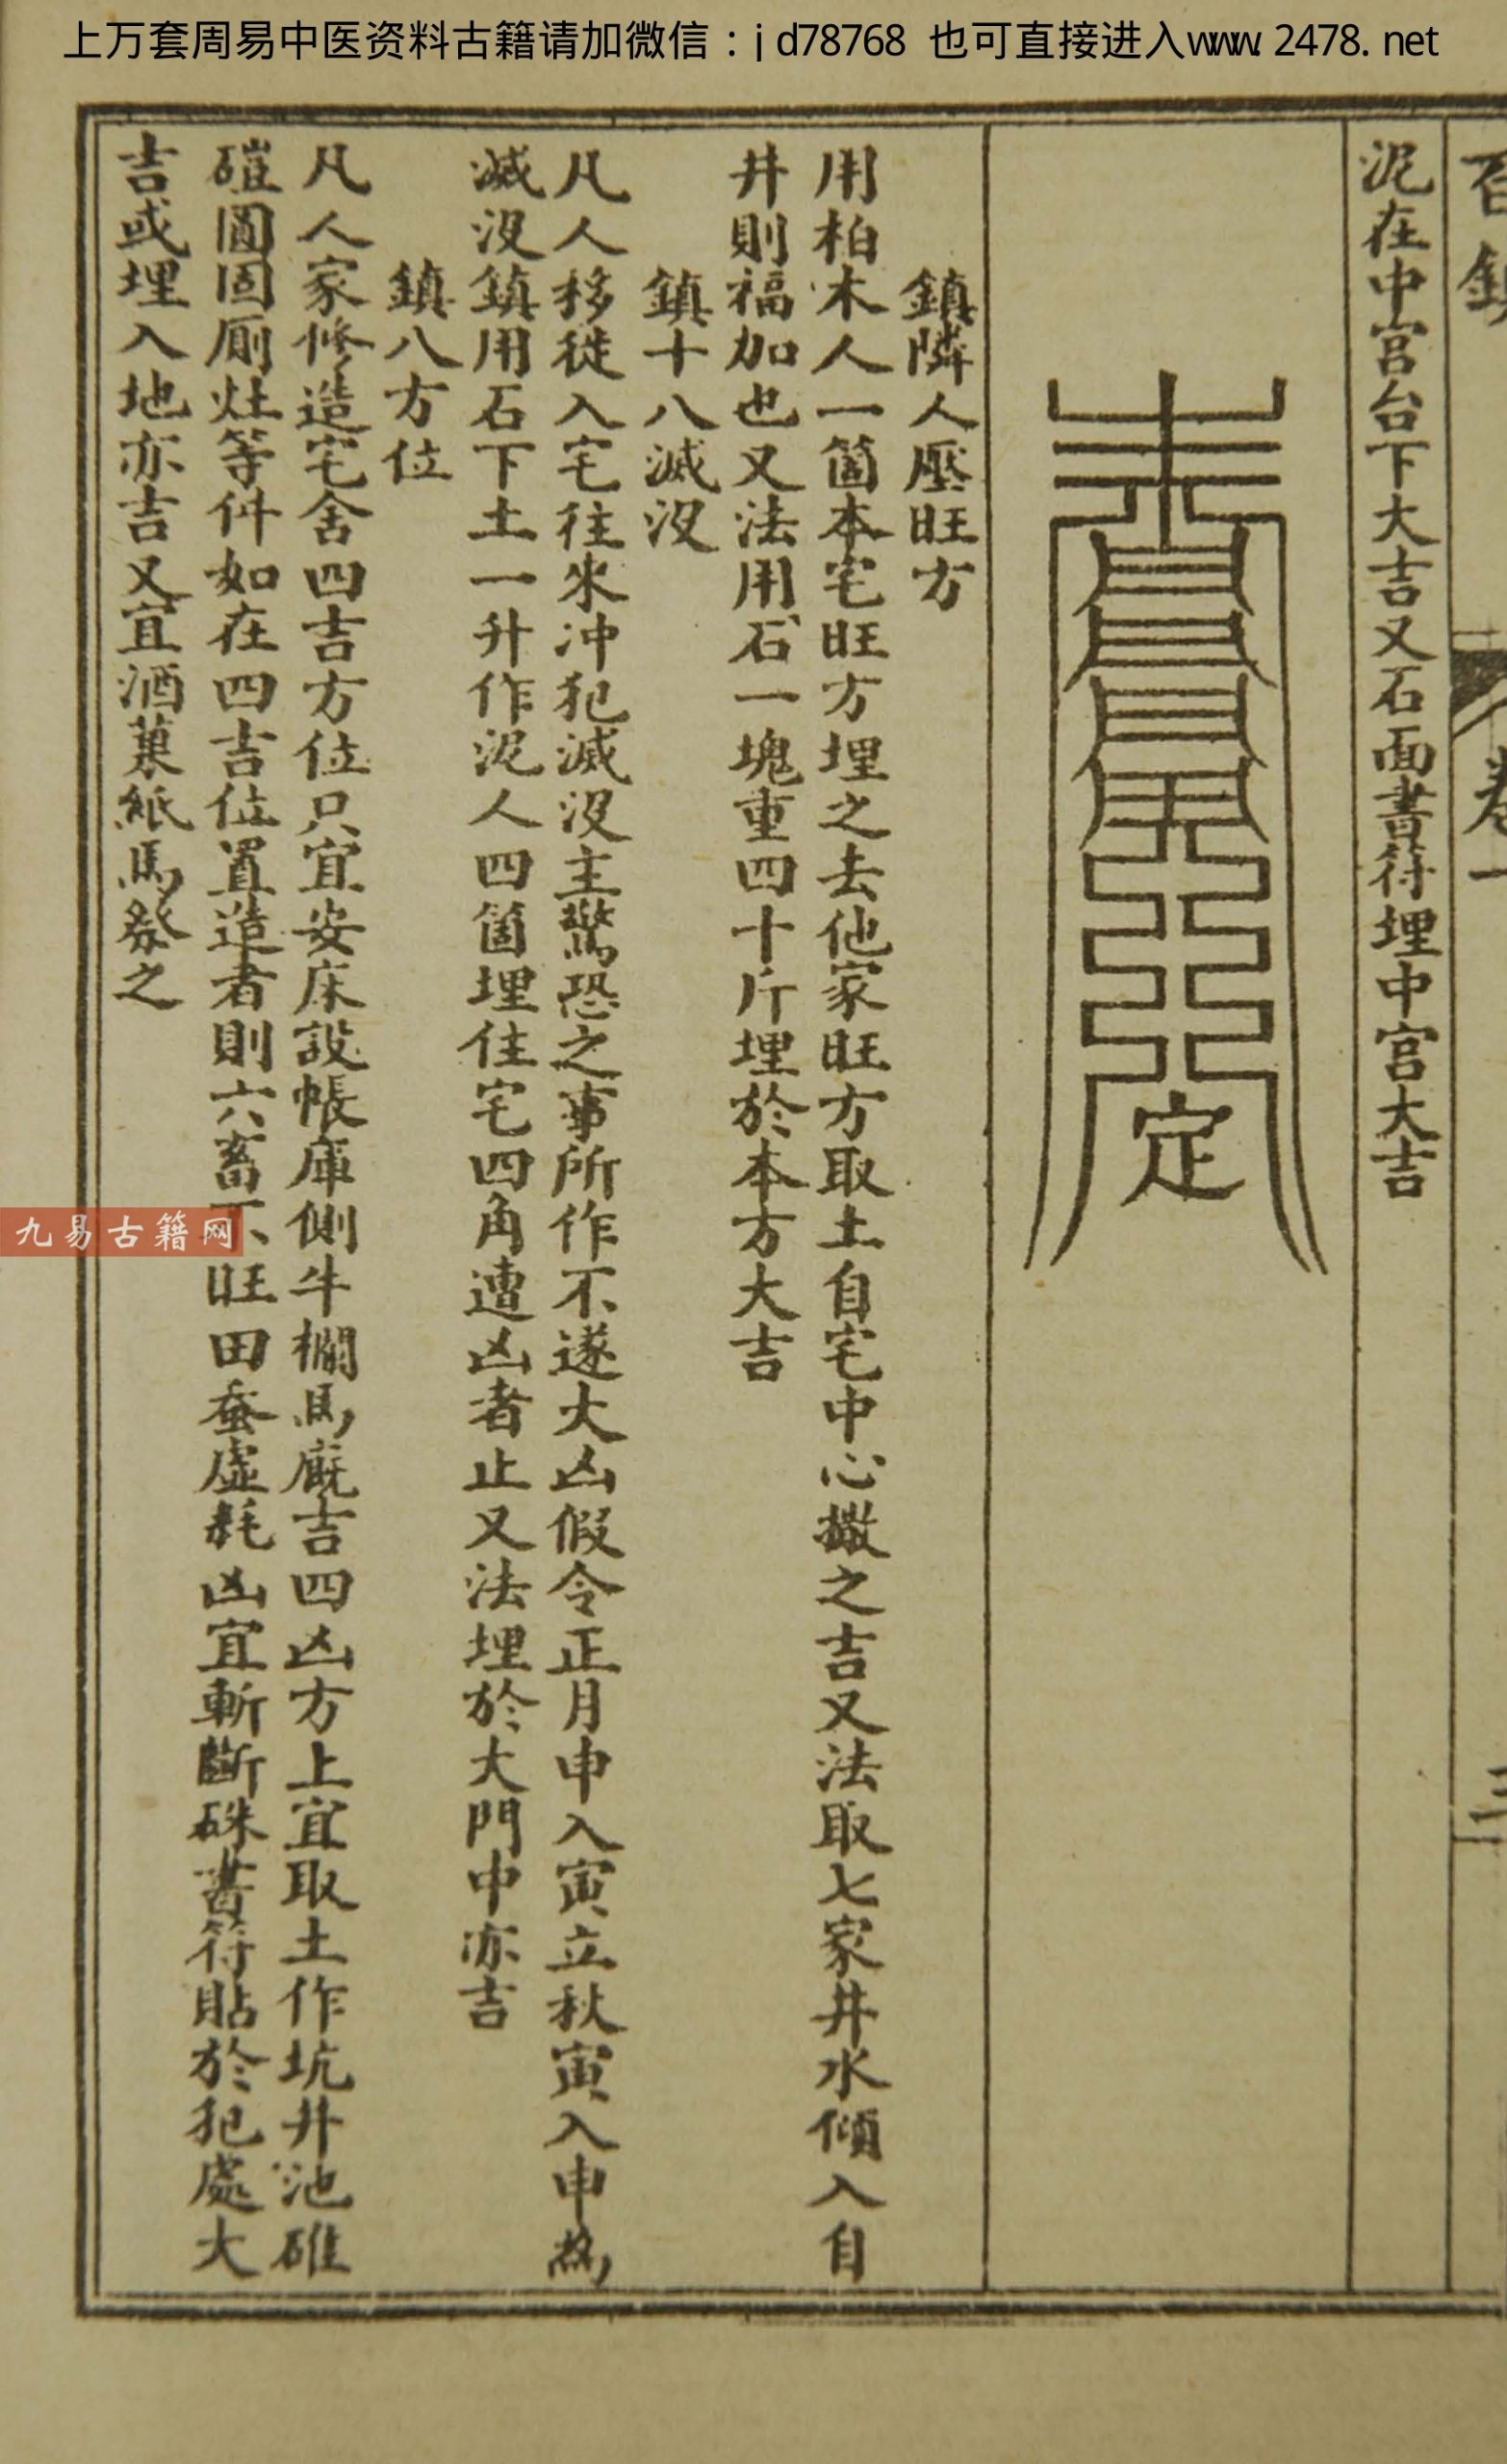 上万套周易中医资料古籍请加微信：jd78768 也可直接进入www.2478.net
卷一
三
泥在中宮台下大吉又石面書符埋中宮大吉
定
鎮隣人壓旺方
用柏木人一箇本宅旺方埋之去他家旺方取土自宅中心撒之吉又法取七家井水傾入自
井則福加也又法用石一塊重四十斤埋於本方大吉
鎮十八滅沒
凡人移徙入宅往來冲犯滅沒主驚恐之事所作不遂大凶假令正月申入寅立秋寅入申為
滅沒鎮用石下土一升作泥人四箇埋住宅四角遭凶者止又法埋於大門中亦吉
鎮八方位
凡人家修造宅舍四吉方位只宜安床設帳庫側牛欄馬廐吉四凶方上宜取土作坑井池碓
磑圊囤厠灶等件如在四吉位置造者則六畜不旺田蚕虛耗凶宜斬斷硃書符貼於犯處大
吉或埋入地亦吉又宜酒菓紙馬發之
九易古籍网